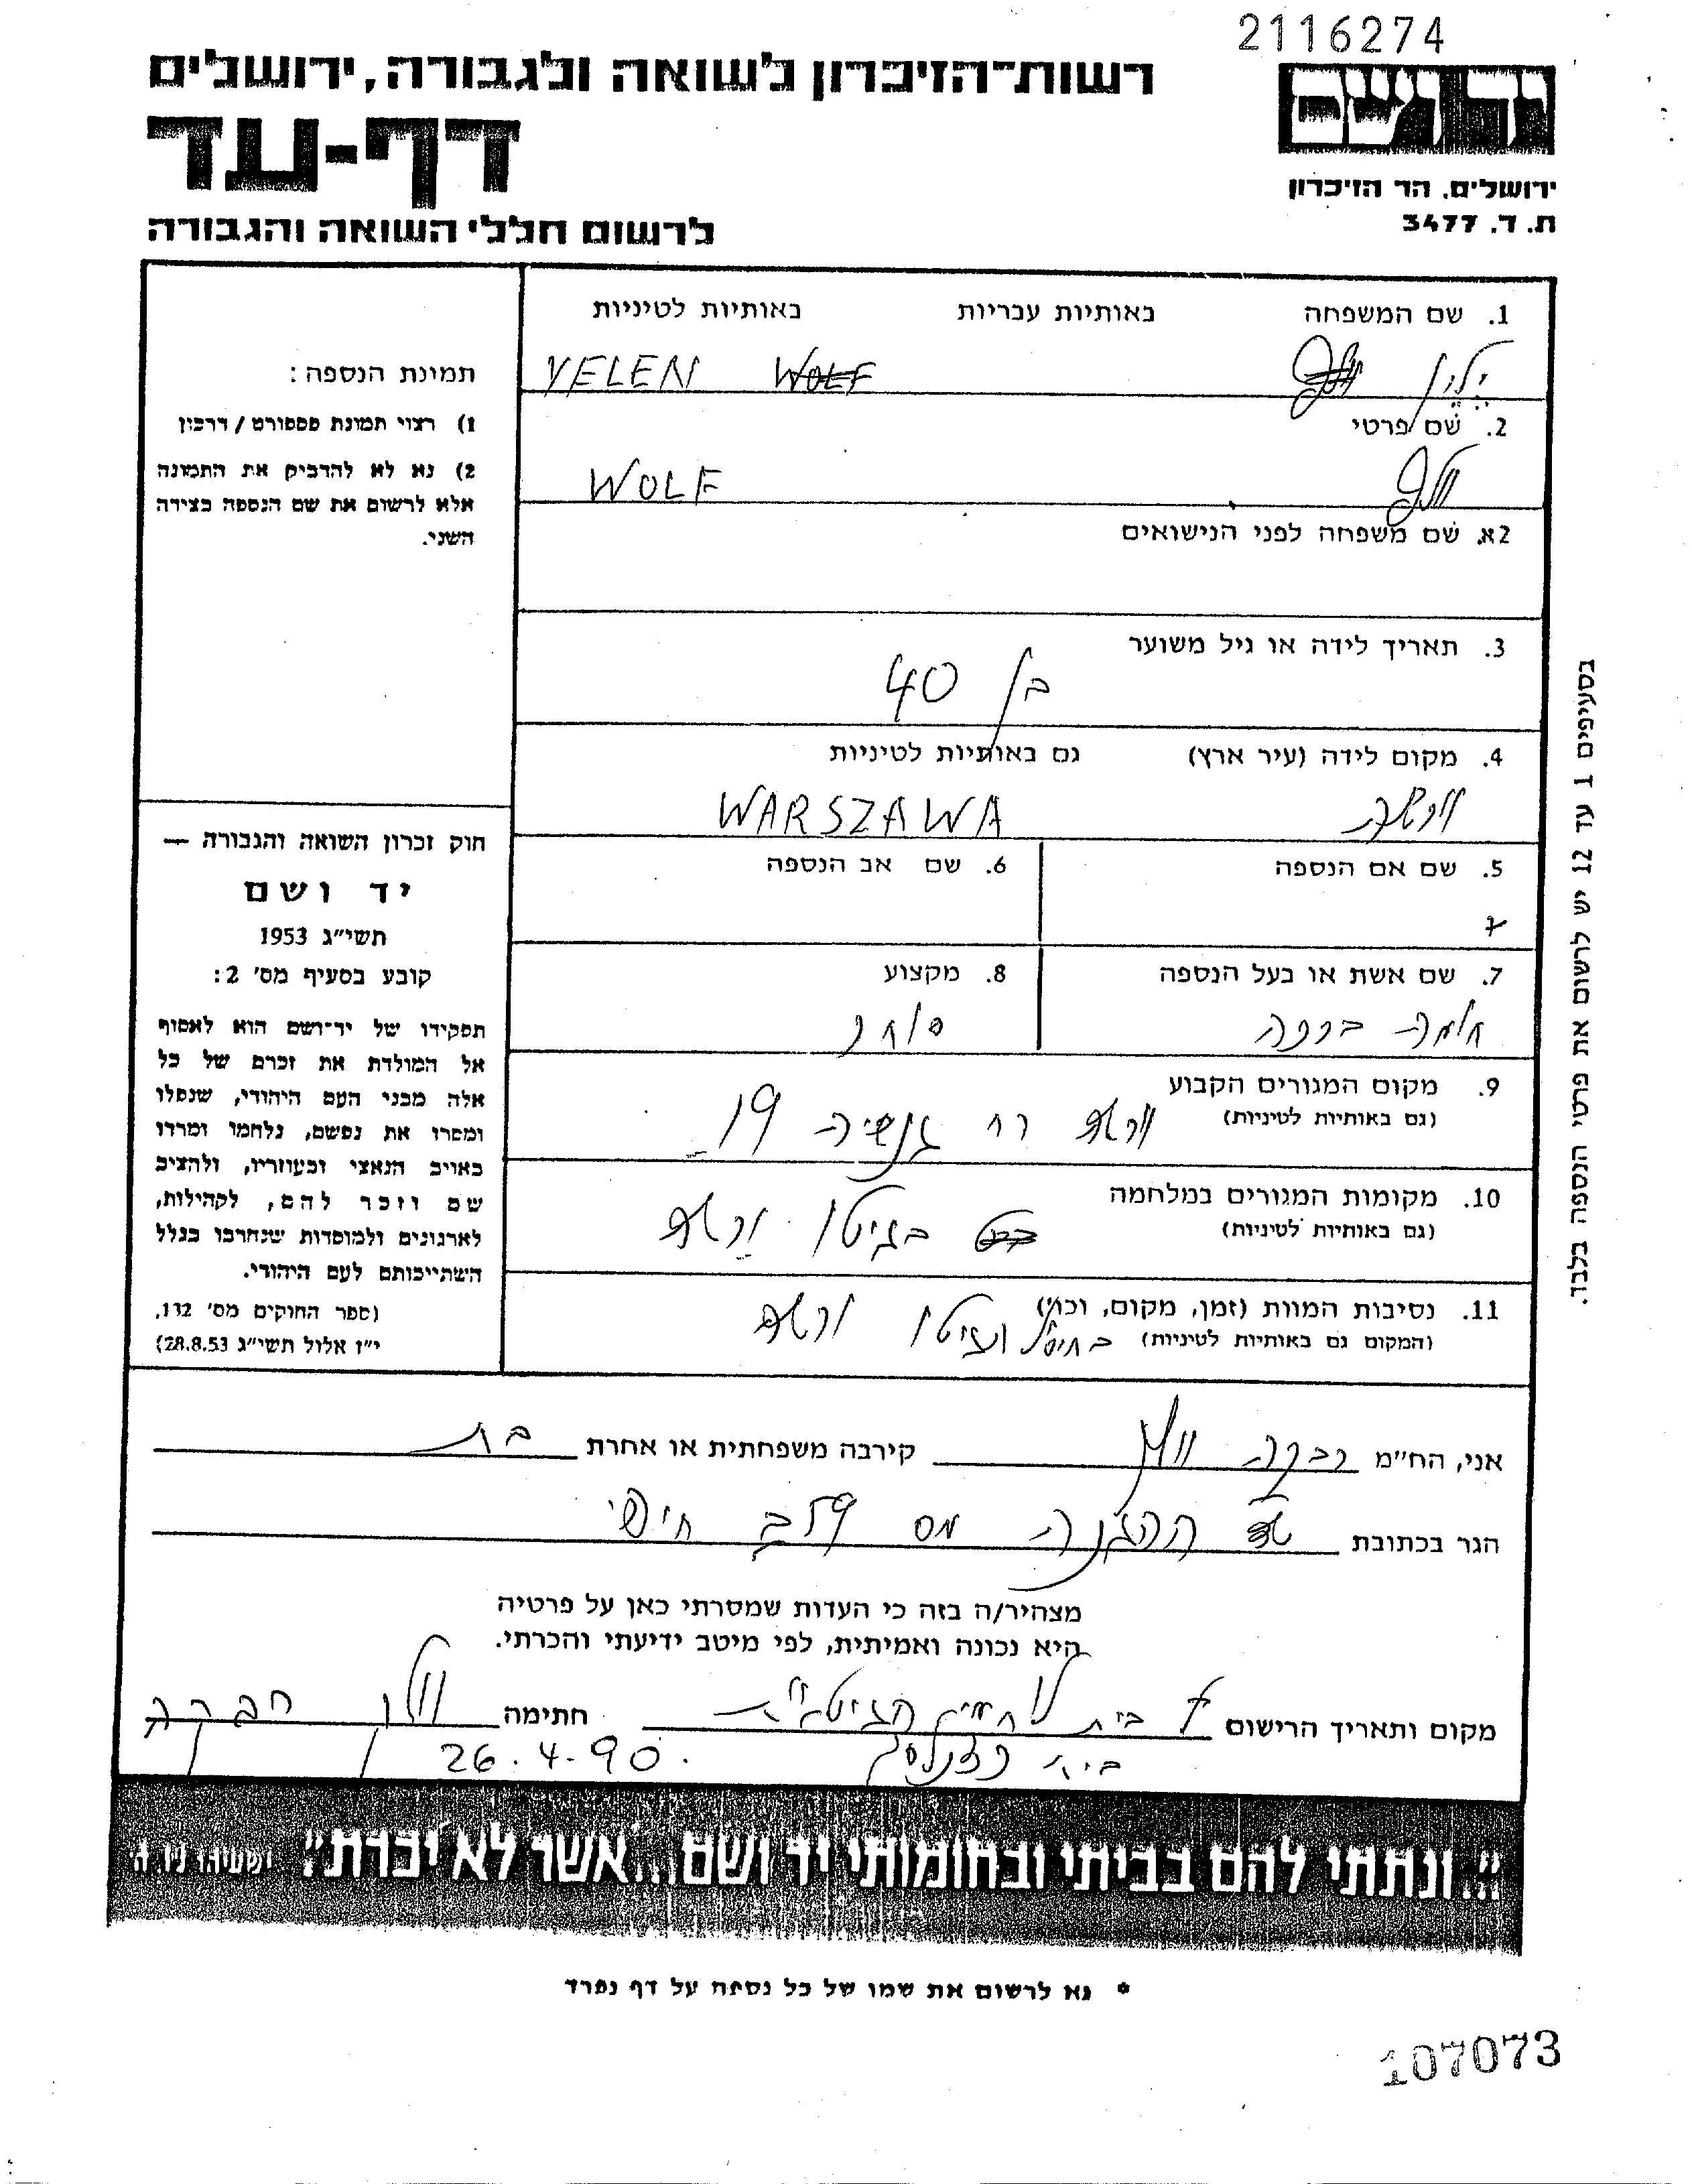 2116274
רשות־הזיכרון לשואה ולגבורה, ירושלים
יד ושם
דף-עד
ירושלים. הר הזיכרון
ת. ד. 3477
לרשום חללי השואה והגבורה
1. שם המשפחה באותיות עבריות באותיות לטיניות
ילין YELEN WOLF
2. שם פרטי
וולף WOLF
2א. שם משפחה לפני הנישואים
3. תאריך לידה או גיל משוער
בן 40
4. מקום לידה (עיר ארץ) גם באותיות לטיניות
וורשה WARSZAWA
5. שם אם הנספה 6. שם אב הנספה
7. שם אשת או בעל הנספה 8. מקצוע
ברכה סוחר
9. מקום המגורים הקבוע
(גם באותיות לטיניות)
ורשה רח גנשיה 19
10. מקומות המגורים במלחמה
(גם באותיות לטיניות)
בגיטו ורשה
11. נסיבות המוות (זמן, מקום, וכו')
(המקום גם באותיות לטיניות) בחיסול גיטו ורשה
תמונת הנספה:
1) רצוי תמונת פספורט / דרכון
2) נא לא להדביק את התמונה
אלא לרשום את שם הנספה בצידה
השני.
חוק זכרון השואה והגבורה —
יד ושם
תשי"ג 1953
קובע בסעיף מס' 2:
תפקידו של יד־ושם הוא לאסוף
אל המולדת את זכרם של כל
אלה מבני העם היהודי, שנפלו
ומסרו את נפשם, נלחמו ומרדו
באויב הנאצי ובעוזריו, ולהציב
שם וזכר להם, לקהילות,
לארגונים ולמוסדות שנחרבו בגלל
השתייכותם לעם היהודי.
(ספר החוקים מס' 132,
י"ז אלול תשי"ג 28.8.53)
בסעיפים 1 עד 12 יש לרשום את פרטי הנספה בלבד.
אני, הח"מ רבקה קירבה משפחתית או אחרת בת
הגר בכתובת ההגנה מס 59ב חיפה
מצהיר/ה בזה כי העדות שמסרתי כאן על פרטיה
היא נכונה ואמיתית, לפי מיטב ידיעתי והכרתי.
מקום ותאריך הרישום בית לוחמי הגיטאות חתימה רבקה
26.4.90
"..ונתתי להם בביתי ובחומותי יד ושם...אשר לא יכרת". ישעיהו נו ה
* נא לרשום את שמו של כל נספה על דף נפרד
107073